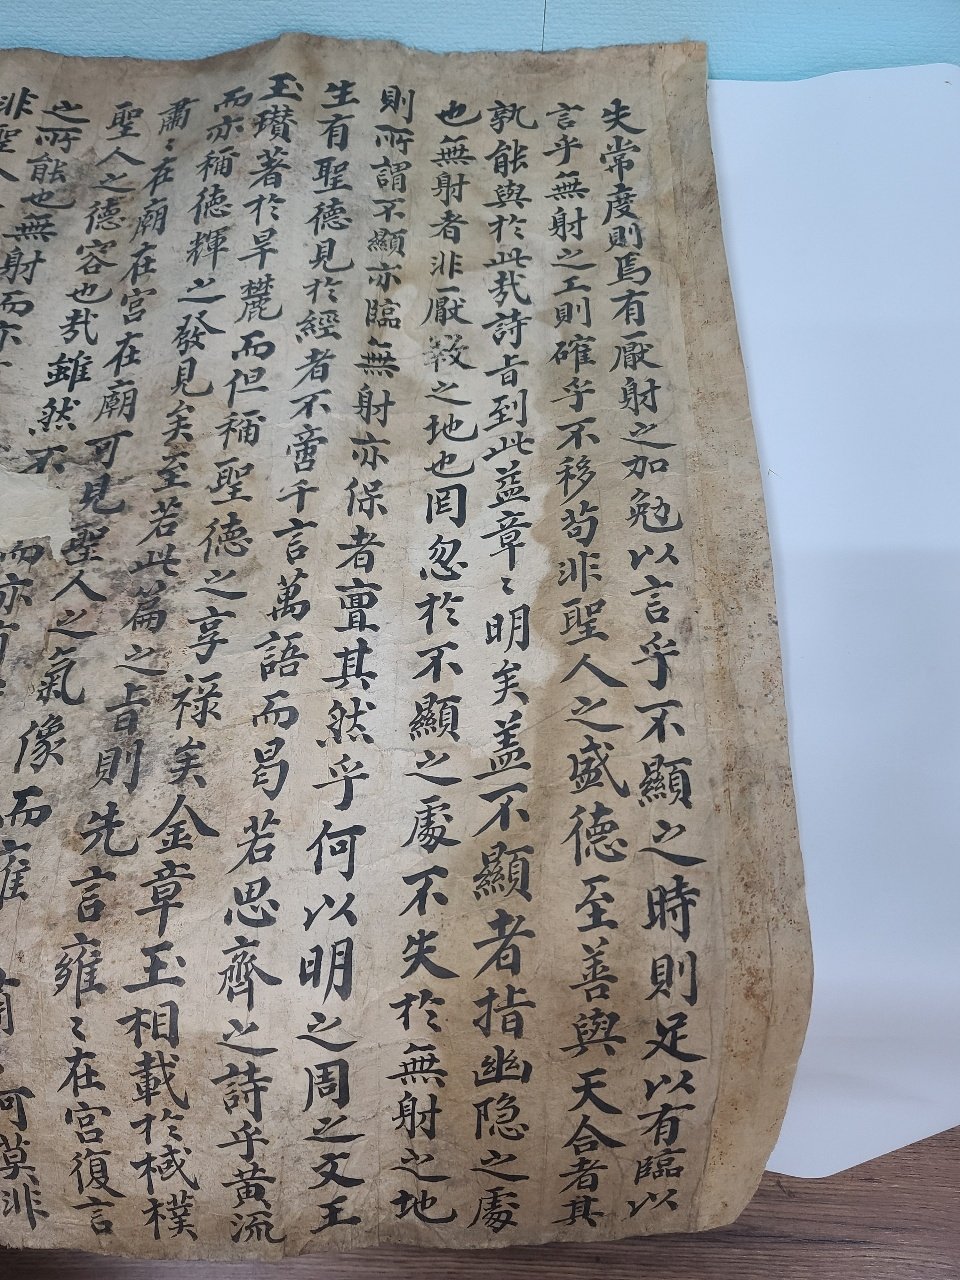 失常度則焉有厭射之加勉以言乎不顯之時則足以有臨以
言乎無射之工則確乎不移苟非聖人之盛德至善與天合者其
孰能與於此哉詩旨到此益章〻明矣盖不顯者指幽隐之處
也無射者非厭斁之地也罔忽於不顯之處不失於無射之地
則所謂不顯亦臨無射亦保者亶其然乎何以明之周之文王
生有聖德見於經者不啻千言萬語而曷若思齊之詩乎黃流
玉瓚著於旱麓而但稱聖德之享禄矣金章玉相載於棫樸
而亦稱德輝之發見矣至若此篇之旨則先言雍〻在宮復言
肅〻在廟在宮在廟可見聖人之氣像
聖人之德容也哉雖然不
之所能也無射而亦
非聖人
而雍
肅
何莫非